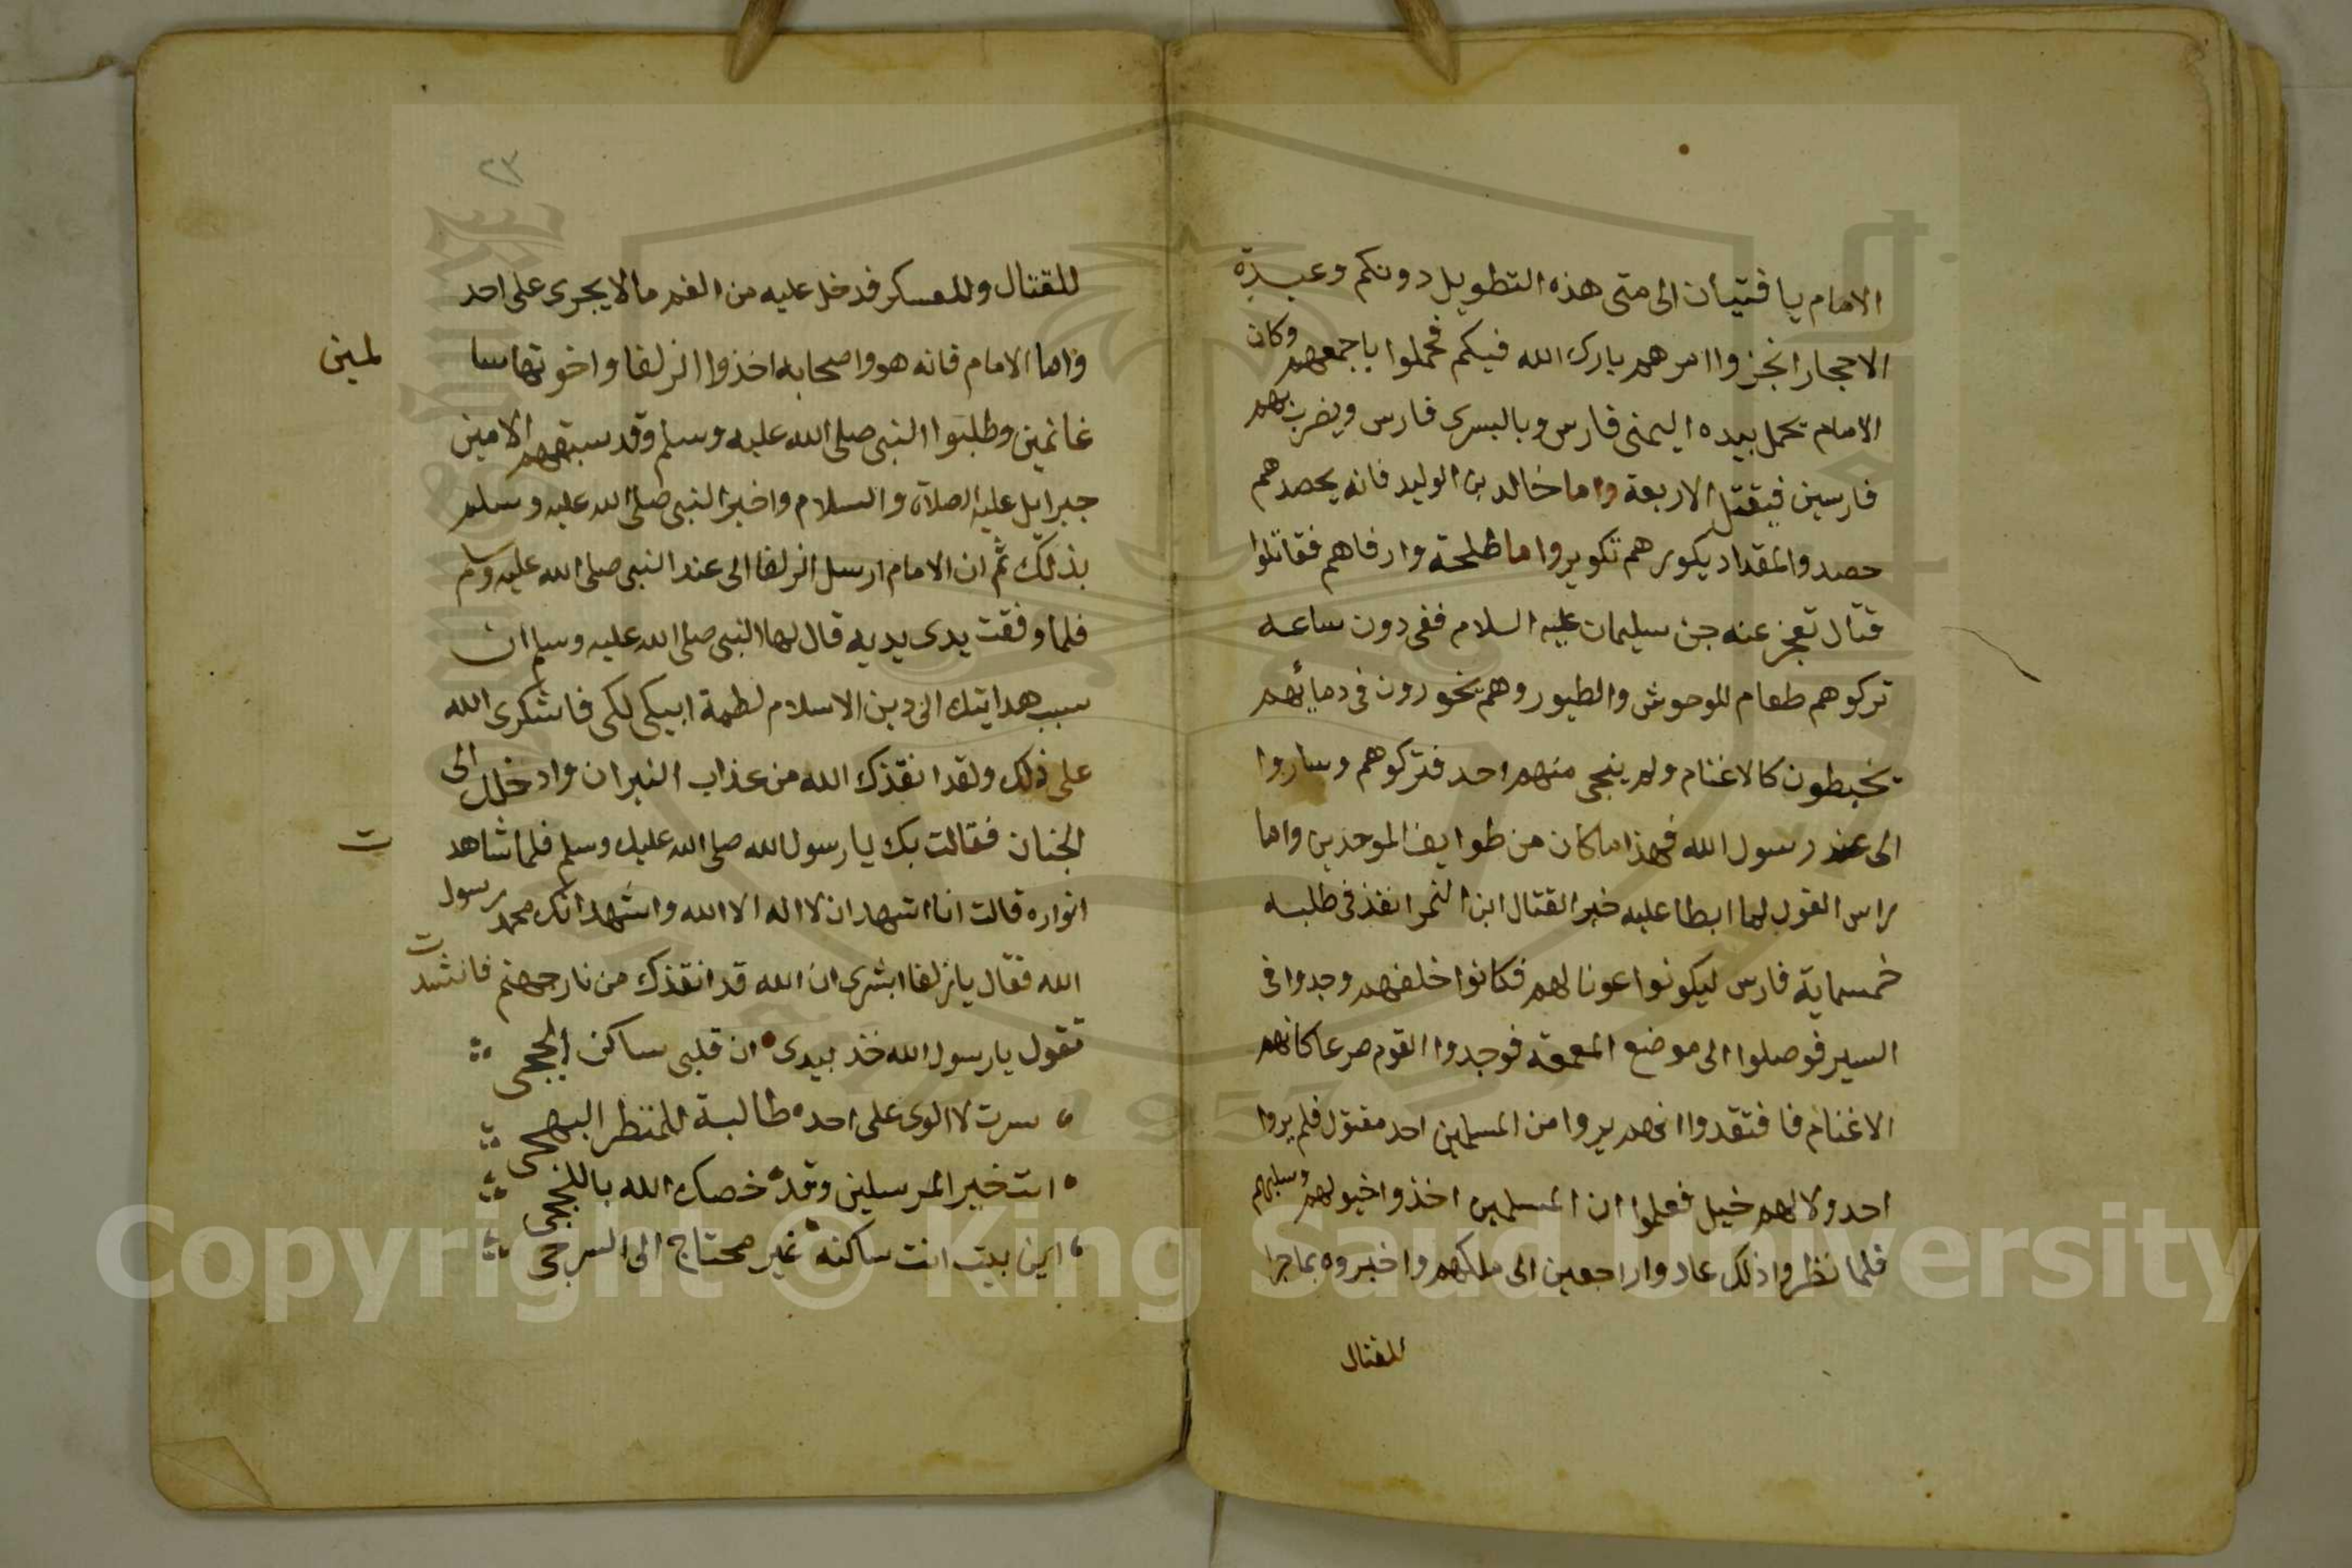 الامام يا فتيان الى متى هذه التطويل دونكم وعبدة
الاحجار انجزوا امرهم بارك الله فيكم فحملوا باجمعهم وكان
الامام يحمل بيده اليمنى فارس وباليسرى فارس ويضرب بهم
فارسين فيقتل الاربعة واما خالد بن الوليد فانه يحصدهم
حصد والمقداد يكورهم تكوير واما طلحة وارفاهم فقاتلوا
قتال تعجز عنه جن سليمان عليه السلام ففي دون ساعه
تركوهم طعام للوحوش والطيور وهم يخورون في دمائهم
يخبطون كالاغنام ولم ينجي منهم احد فتركوهم وساروا
الى عند رسول الله فهذا ما كان من طوايف الموحدين واما
راس الغول لما ابطا عليه خبر القتال ابن النمر انفذ في طلبه
خمسماية فارس ليكونوا عونا لهم فكانوا خلفهم وجدوا في
السير فوصلوا الى موضع المعمعة فوجدوا القوم صرعا كانهم
الاغنام فافتقدوا انهم يروا من المسلمين احد مقتول فلم يروا
احد ولا لهم خيل فعلموا ان المسلمين اخذوا خيولهم وسلبهم
فلما نظروا ذلك عادوا راجعين الى ملكهم واخبروه بما جرا
للقتال
٢٣
للقتال وللعسكر فدخل عليه من الغم ما لا يجرى على احد
واما الامام فانه هو واصحابه اخذوا الزلفا واخوتها سا
لمين
غانمين وطلبوا النبى صلى الله عليه وسلم وقد سبقهم الامين
جبرايل عليه الصلاة والسلام واخبر النبى صلى الله عليه وسلم
بذلك ثم ان الامام ارسل الزلفا الى عند النبى صلى الله عليه وسلم
فلما وقفت يدى يديه قال لها النبى صلى الله عليه وسلم ان
سبب هدايتك الى دين الاسلام لطمة ابيكى لكى فاشكرى الله
على ذلك ولقد انقذك الله من عذاب النيران وادخلك الى
الجنان فقالت بك يا رسول الله صلى الله عليك وسلم فلما شاهد
ت
انواره قالت انا اشهد ان لا اله الا الله واشهد انك محمد رسول
الله فقال يا زلفا ابشرى ان الله قد انقذك من نار جهنم فانشد
ت
تقول يا رسول الله خذ بيدى ان قلبى ساكن
سرت لا الوى على احد طالبة للمنظر البهجى
انت خير المرسلين وقد خصك الله
اين بيت انت ساكنه غير محتاج الى السرجى
Copyright © King Saud University
1957